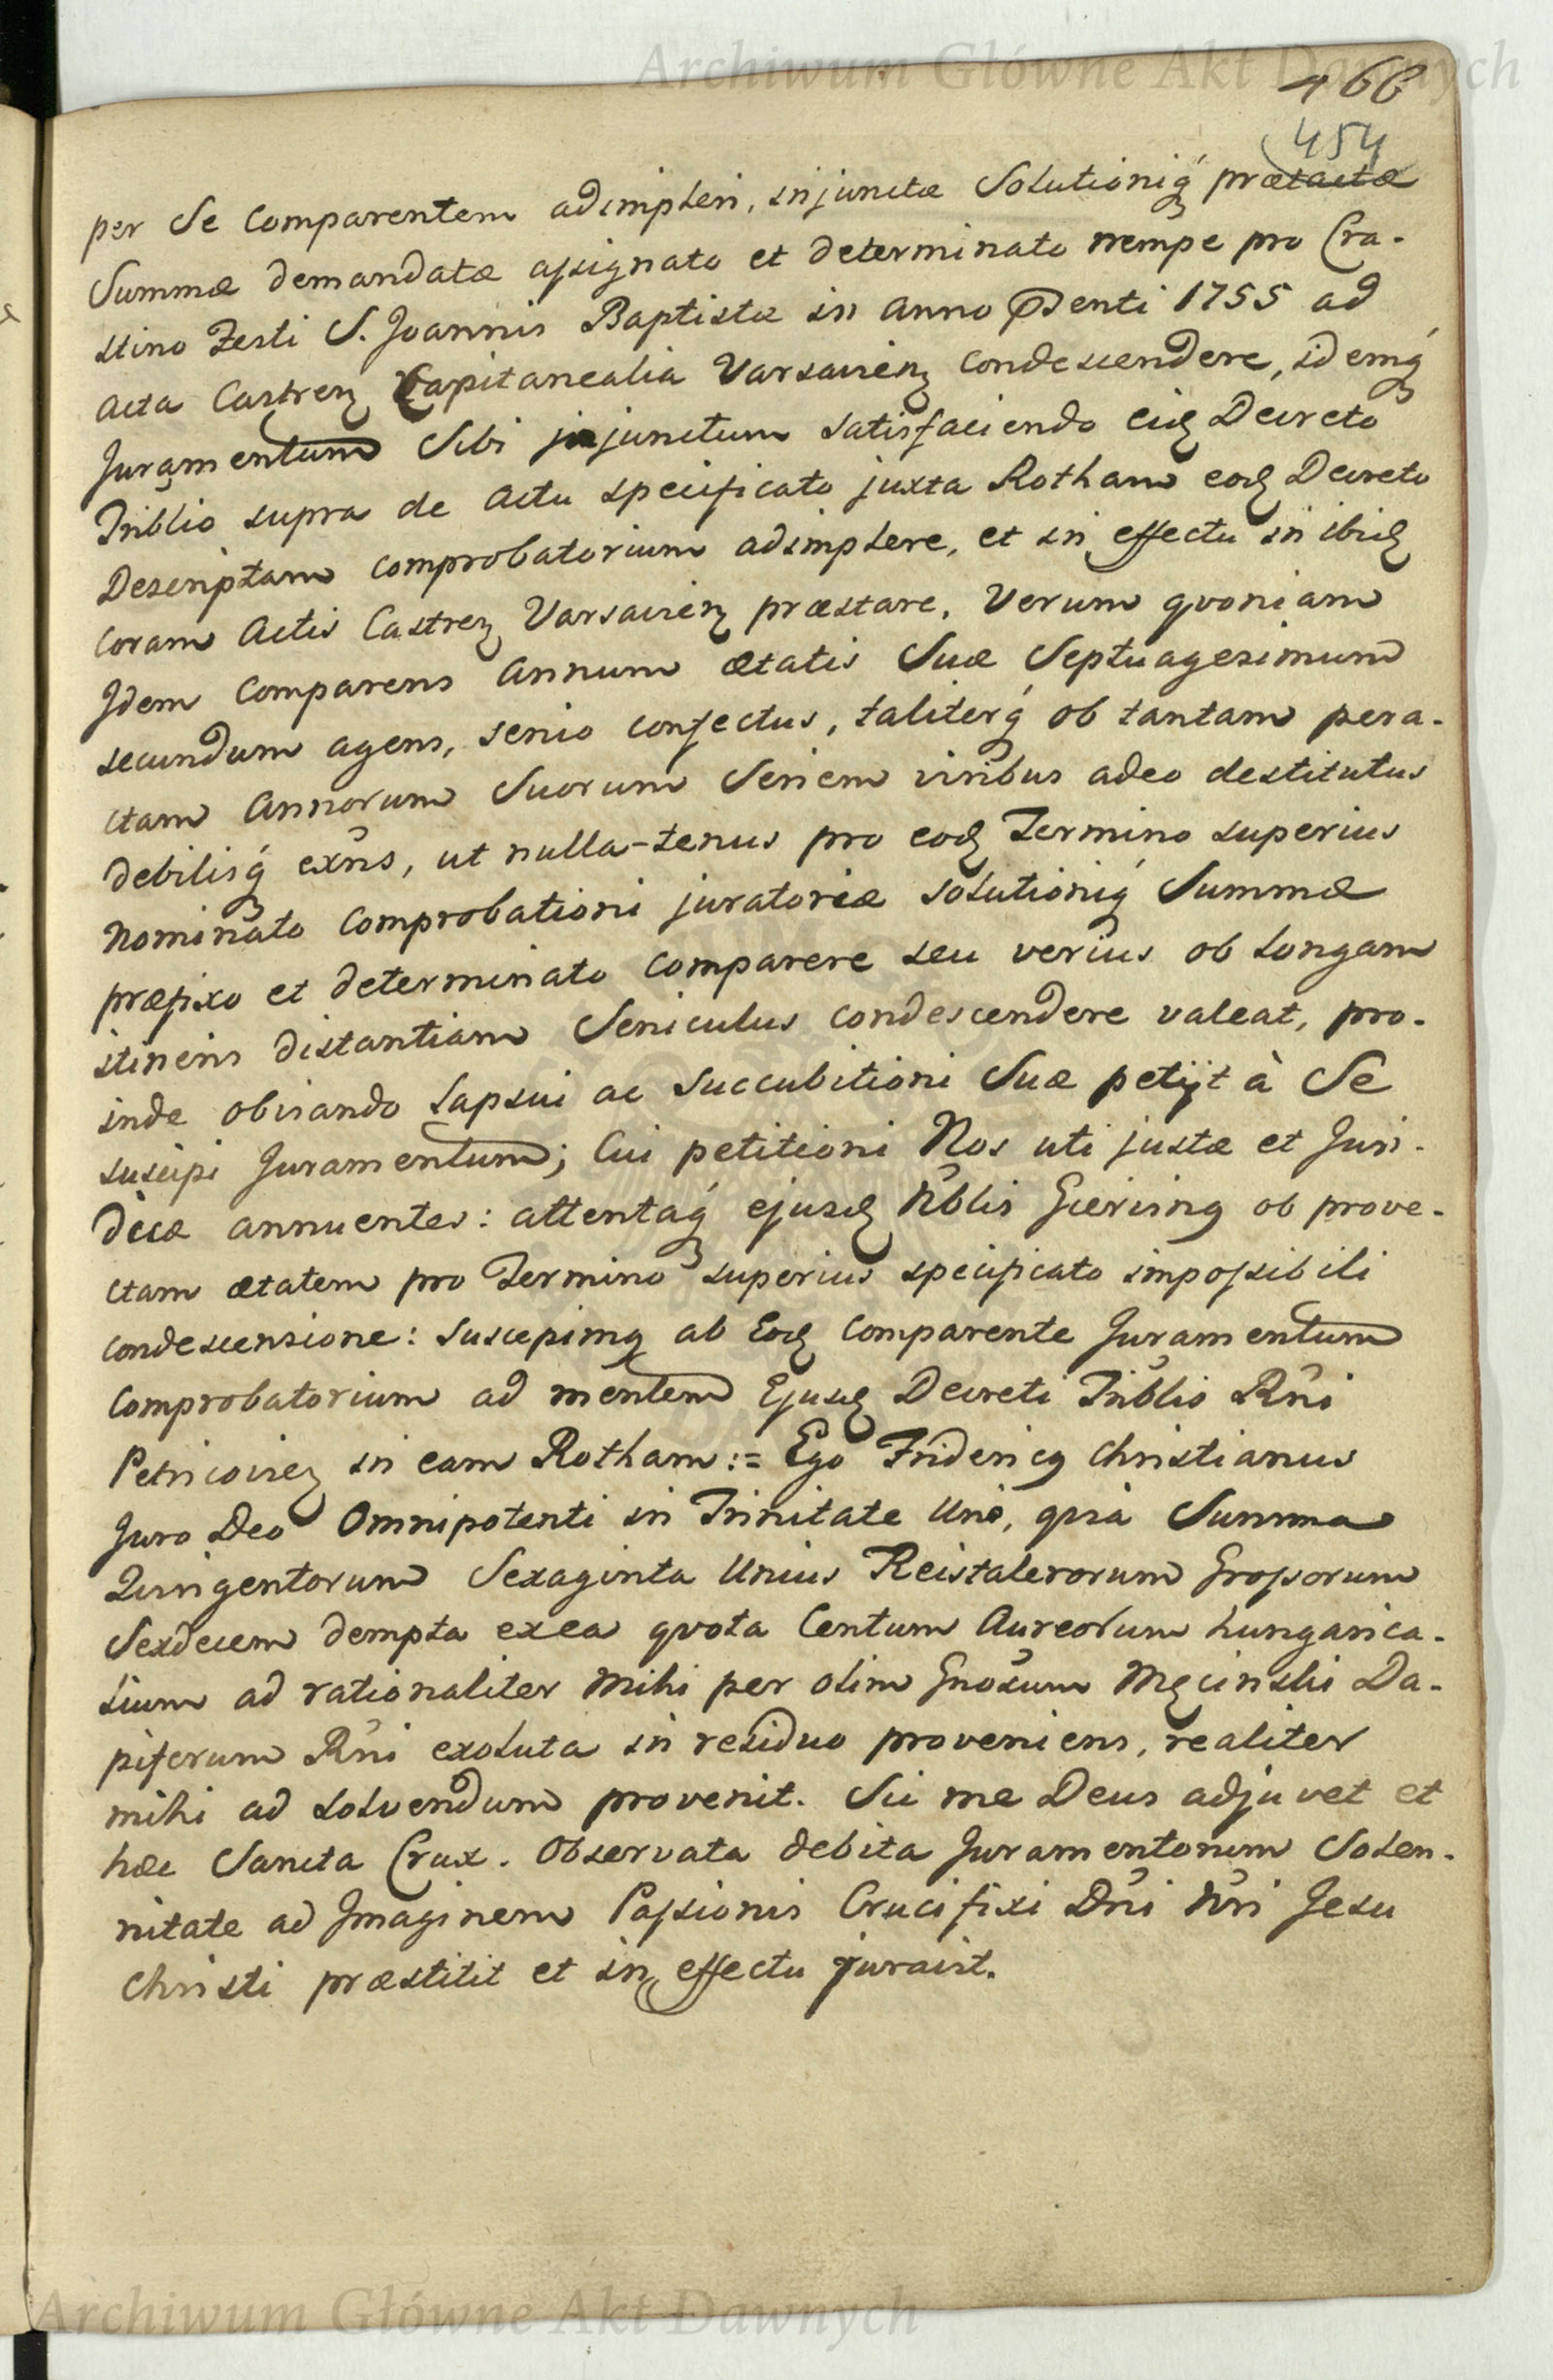 Archiwum Główne Akt Dawnych
466
454
per Se Comparentem adimpleri, injunctæ Solutioniq́ prætactæ
Summæ demandatæ assignato et determinato nempe pro Cra-
stino Festi S. Joannis Baptistæ in Anno Pnti 1755 ad
Acta Castren Capitanealia Varsavien condescendere, idemq́
Juramentum Sibi injunctum satisfaciendo eid Decreto
Triblio supra de Actu specificato juxta Rotham eod Decreto
Descriptam comprobatorium adimplere, et in effectu in ibid
coram Actis Castren Varsavien præstare, Verum qvoniam
Idem Comparens Annum ætatis Suæ Septuagesimum
secundum agens, senio confectus, taliterq́ ob tantam pera-
ctam Annorum Suorum Seriem viribus adeo destitutus
debilisq́ exñs, ut nulla-tenus pro eod Termino superius
Nominato Comprobationi juratoriæ solutioniq́ Summæ
præfixo et determinato comparere seu verius ob longam
itineris distantiam Seniculus condescendere valeat, pro-
inde obviando lapsui ac succubitioni Suæ petijt à Se
suscipi Juramentum; Cui petitioni Nos uti justæ et Juri-
dicæ annuentes: attentaq́ ejusd Nblis Giering ob prove-
ctam ætatem pro Termino superius specificato impossibili
condescensione: suscepimq ab Eod Comparente Juramentum
Comprobatorium ad mentem Ejusd Decreti Triblis Rñi
Petricovien in eam Rotham:= Ego Fridericq Christianus
Juro Deo Omnipotenti in Trinitate Uno, qvia Summa
Qvingentorum Sexaginta Unius Reistalerorum Grossorum
Sexdecem dempta ex ea qvota Centum Aureorum hungarica-
lium ad rationaliter Mihi per olim Gnosum Męcinski Da-
piferum Rñi exoluta in residuo proveniens, realiter
mihi ad solvendum provenit. Sic me Deus adjuvet et
hæc Sancta Crux. Observata debita Juramentorum Solen-
nitate ad Imaginem Passionis Crucifixi Dñi Nri Jesu
Christi præstitit et in effectu juravit.
Archiwum Główne Akt Dawnych